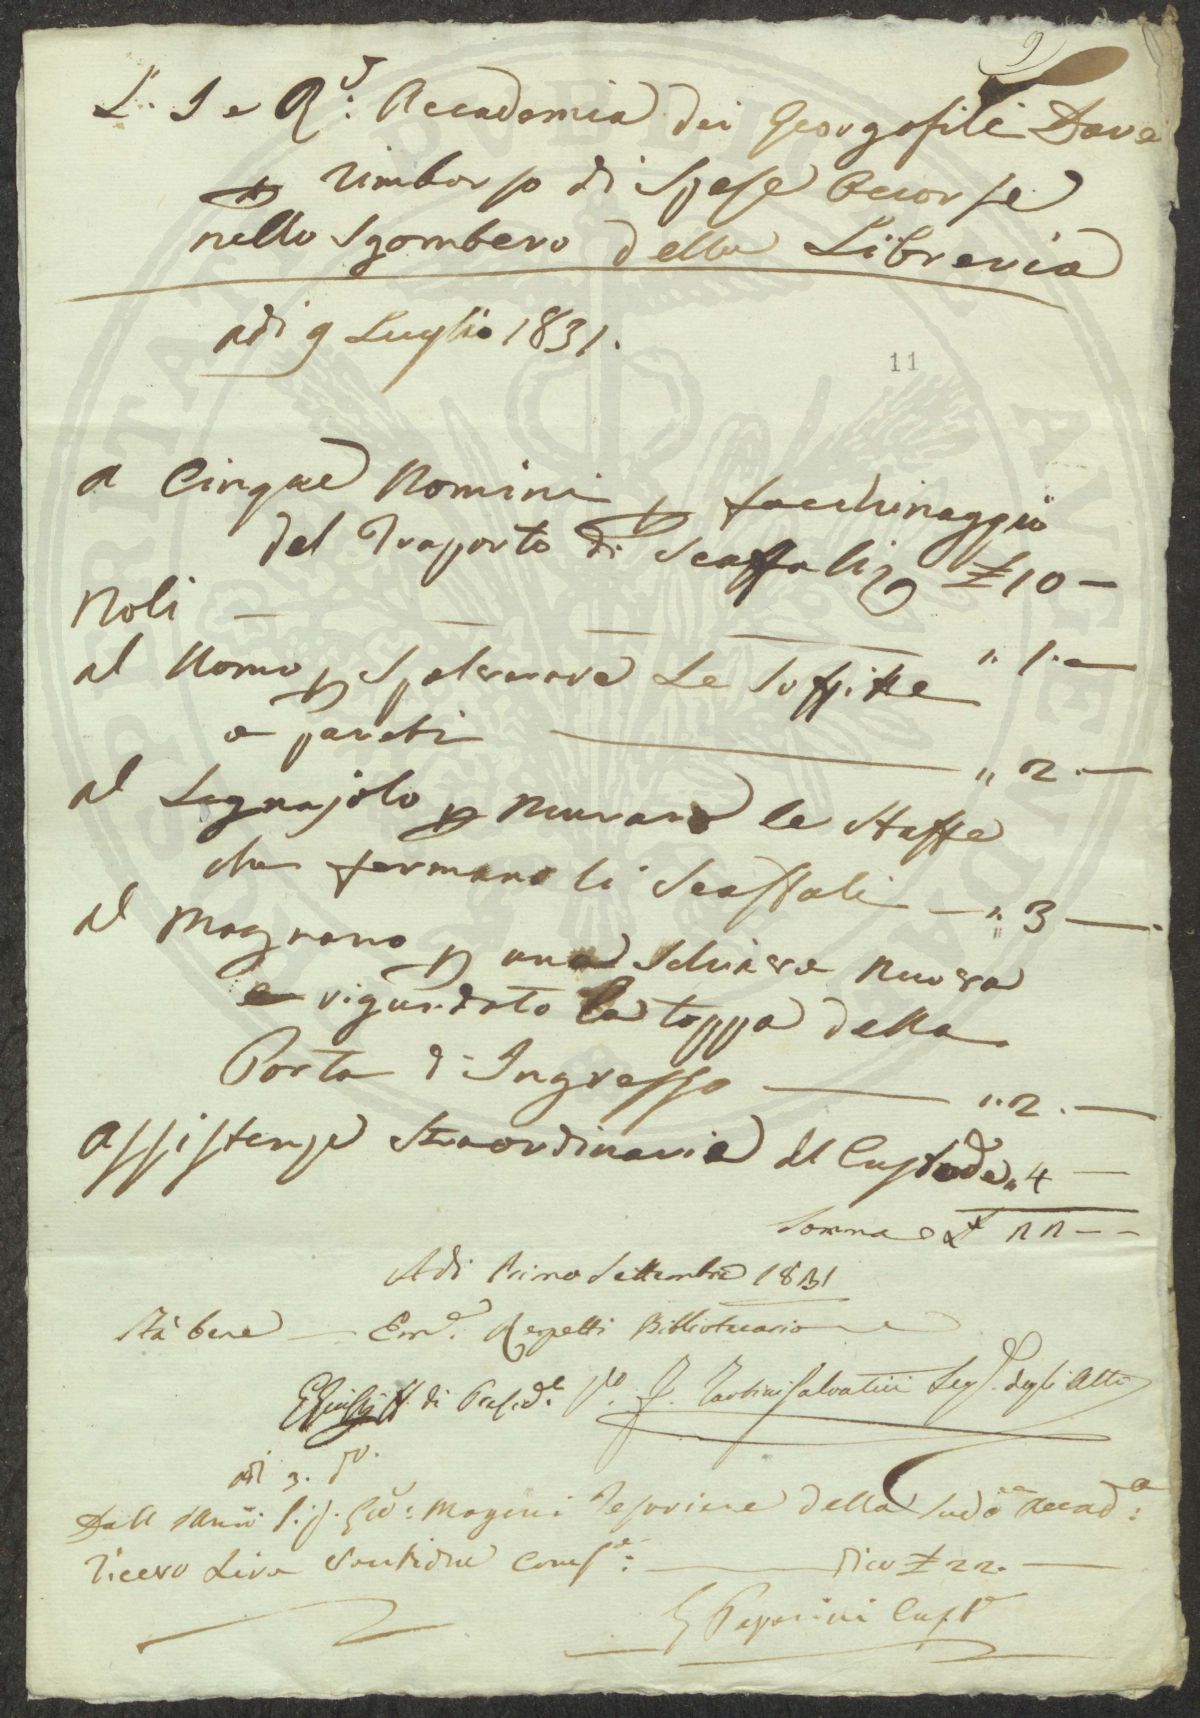 9
L'. I e R.: Accademia dei Georgofili Dare
p rimborso di Spese Occorse
nello Sgombero della Libreria
adi 9 Luglio 1831.
11
a Cinque Uomini p facchinaggio
del Trasporto di Scaffali £ 10 —
Noli — — — — " 1. —
al Uomo p Spolverare Le Soffitte
e pareti — " 2. —
al Legnajolo p Murare le Staffe
che fermano li Scaffali — " 3 —
al Magnano p una Chiave nuova
e riguardato la toppa della
Porta d'Ingresso — " 2. —
assistenze straordinarie del Custode " 4 —
Somma £ 22 — —
Adi Primo Settembre 1831
Stà bene — Em.e Repetti Bibliotecario
di Presid.e F. Tartini Salvatici Seg. degli Atti
adi 3. do.
Dall Sig. Gio: Magini Tesoriere della Sud.a Accad.a:
ricevo Lire Ventidue — dico £ 22. —
Paperini Cust.e